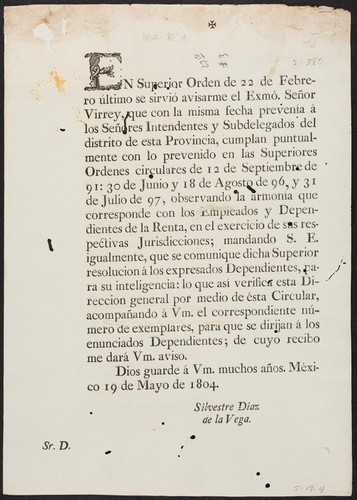 ✠
EN Superior Orden de 22 de Febre-
ro último se sirvió avisarme el Exmô. Señor
Virrey, que con la misma fecha prevenía á
los Señores Intendentes y Subdelegados del
distrito de esta Provincia, cumplan puntual-
mente con lo prevenido en las Superiores
Ordenes circulares de 12 de Septiembre de
91: 30 de Junio y 18 de Agosto de 96, y 31
de Julio de 97, observando la armonía que
corresponde con los Empleados y Depen-
dientes de la Renta, en el exercicio de sus res-
pectivas Jurisdicciones; mandando S. E.
igualmente, que se comunique dicha Superior
resolucion á los expresados Dependientes, pa-
ra su inteligencia: lo que asi verifica esta Di-
reccion general por medio de ésta Circular,
acompañando á Vm. el correspondiente nú-
mero de exemplares, para que se dirijan á los
enunciados Dependientes; de cuyo recibo
me dará Vm. aviso.
Dios guarde á Vm. muchos años. Méxi-
co 19 de Mayo de 1804.
Silvestre Diaz
de la Vega.
Sr. D.
5-19-4